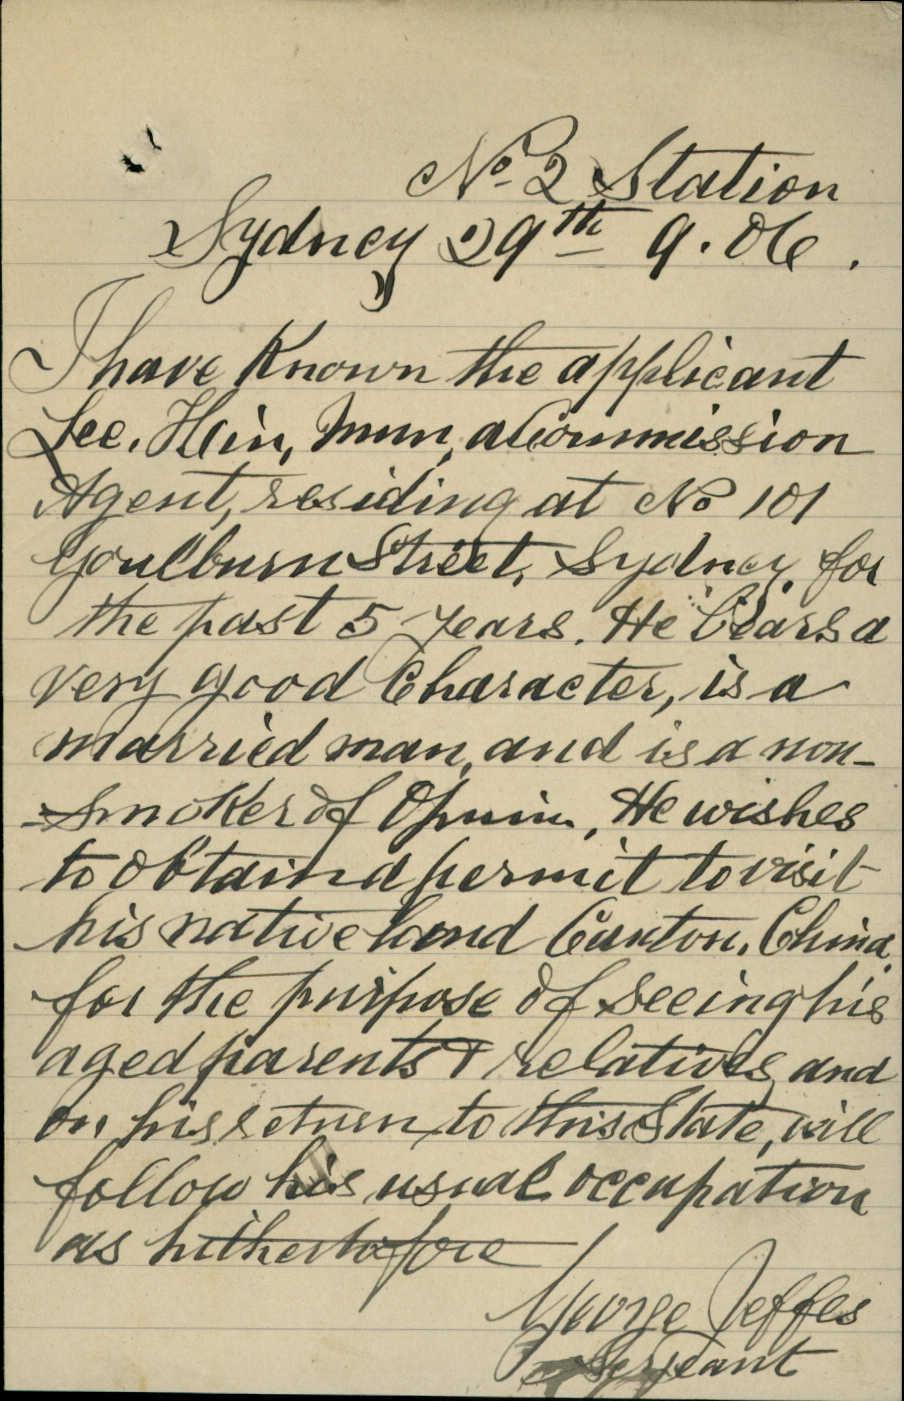 No 2 Station
Sydney 29th 9.06.
I have Known the applicant
Lee, Hin, Mun, a Commission
Agent, residing at No 101
Goulburn Street, Sydney for
the past 5 years. He Bears a
very good Character, is a
married man, and is a non-
-smoker of Opium, He wishes
to obtain a permit to visit
his native land Canton, China,
for the purpose of seeing his
aged parents & relatives, and
on his return to this State, will
follow his usual occupation
as hithertofore
George Jeffes
Serjeant